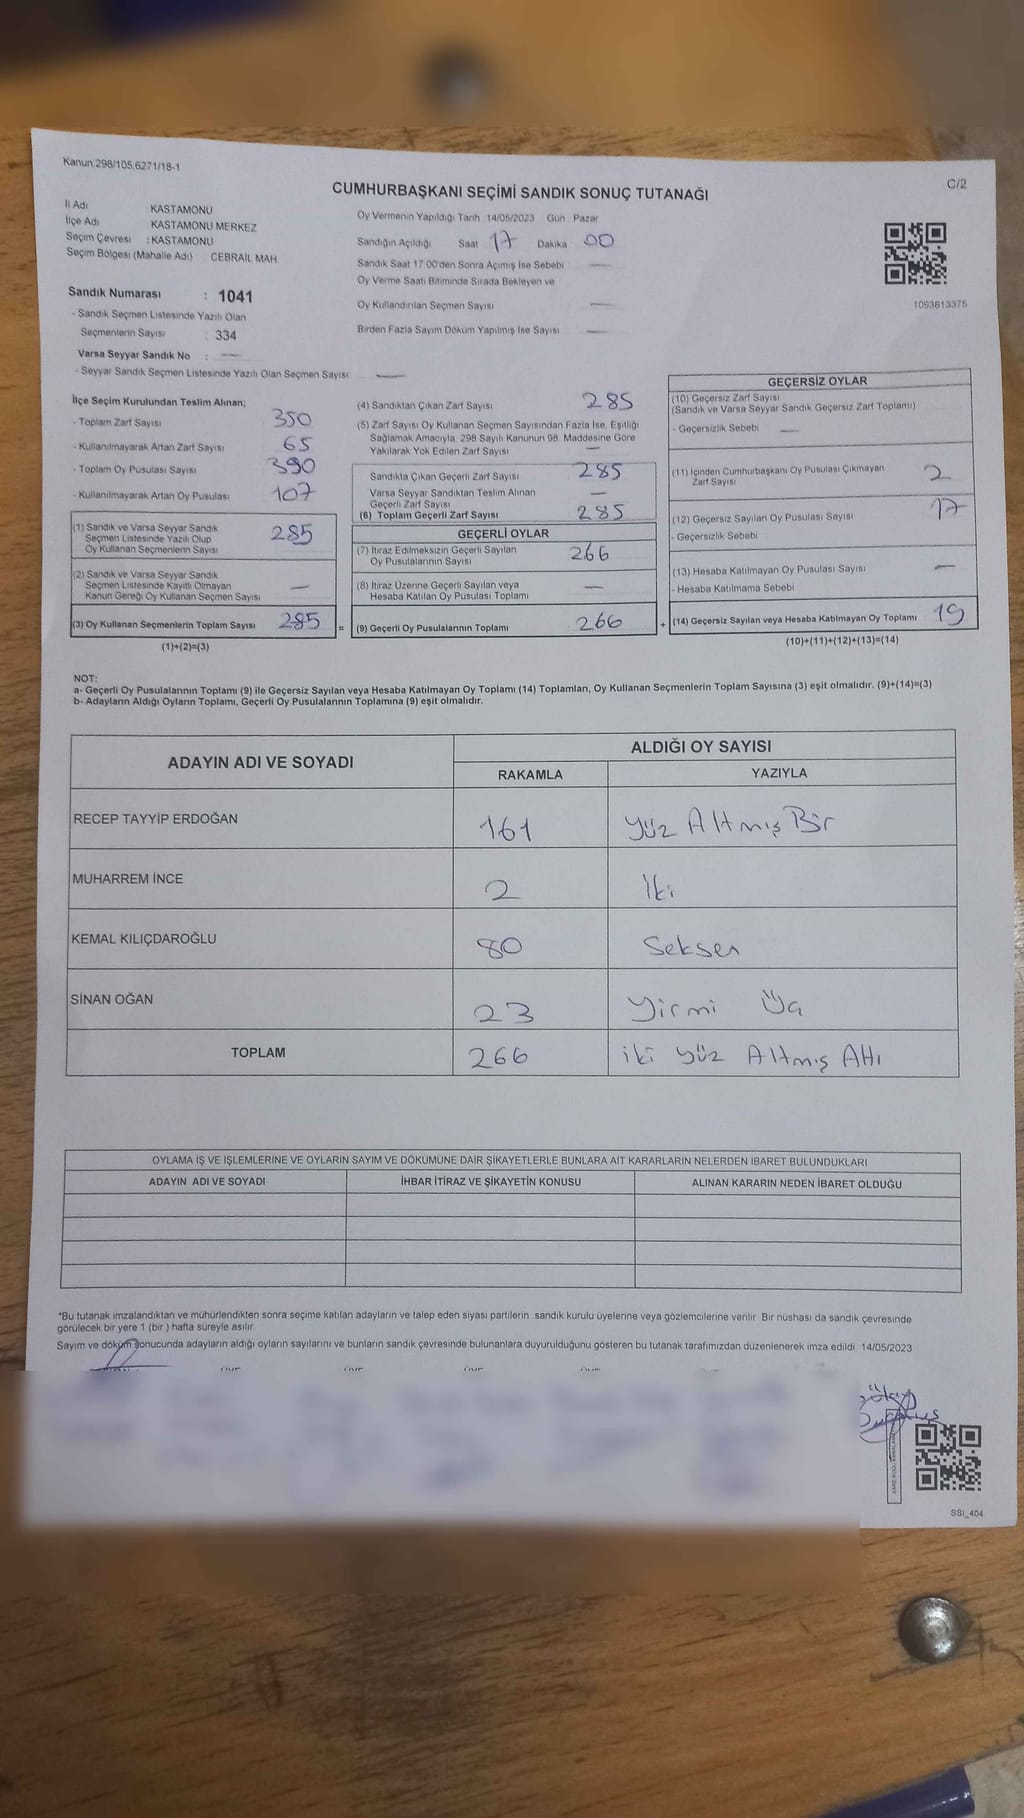 Kanun.298/105,6271/18-1
C/2
CUMHURBAŞKANI SEÇİMİ SANDIK SONUÇ TUTANAĞI
İl Adı KASTAMONU
İlçe Adı KASTAMONU MERKEZ
Seçim Çevresi : KASTAMONU
Seçim Bölgesi (Mahalle Adı) CEBRAİL MAH
Sandık Numarası : 1041
- Sandık Seçmen Listesinde Yazılı Olan
Seçmenlerin Sayısı : 334
Varsa Seyyar Sandık No : —
- Seyyar Sandık Seçmen Listesinde Yazılı Olan Seçmen Sayısı —
Oy Vermenin Yapıldığı Tarih 14/05/2023 Gün Pazar
Sandığın Açıldığı Saat 17 Dakika 00
Sandık Saat 17:00'den Sonra Açımış İse Sebebi —
Oy Verme Saati Bitiminde Sırada Bekleyen ve
Oy Kullandırılan Seçmen Sayısı —
Birden Fazla Sayım Döküm Yapılmış İse Sayısı —
1093613375
İlçe Seçim Kurulundan Teslim Alınan;
- Toplam Zarf Sayısı 350
- Kullanılmayarak Artan Zarf Sayısı 65
- Toplam Oy Pusulası Sayısı 390
- Kullanılmayarak Artan Oy Pusulası 107
(1) Sandık ve Varsa Seyyar Sandık
Seçmen Listesinde Yazılı Olup
Oy Kullanan Seçmenlerin Sayısı 285
(2) Sandık ve Varsa Seyyar Sandık
Seçmen Listesinde Kayıtlı Olmayan
Kanun Gereği Oy Kullanan Seçmen Sayısı —
(3) Oy Kullanan Seçmenlerin Toplam Sayısı 285 =
(1)+(2)=(3)
(4) Sandıktan Çıkan Zarf Sayısı 285
(5) Zarf Sayısı Oy Kullanan Seçmen Sayısından Fazla İse, Eşitliği
Sağlamak Amacıyla, 298 Sayılı Kanunun 98. Maddesine Göre
Yakılarak Yok Edilen Zarf Sayısı —
Sandıkta Çıkan Geçerli Zarf Sayısı 285
Varsa Seyyar Sandıktan Teslim Alınan
Geçerli Zarf Sayısı —
(6) Toplam Geçerli Zarf Sayısı 285
GEÇERLİ OYLAR
(7) İtiraz Edilmeksizin Geçerli Sayılan
Oy Pusulalarının Sayısı 266
(8) İtiraz Üzerine Geçerli Sayılan veya
Hesaba Katılan Oy Pusulası Toplamı —
(9) Geçerli Oy Pusulalarının Toplamı 266 +
GEÇERSİZ OYLAR
(10) Geçersiz Zarf Sayısı
(Sandık ve Varsa Seyyar Sandık Geçersiz Zarf Toplamı)
- Geçersizlik Sebebi —
(11) İçinden Cumhurbaşkanı Oy Pusulası Çıkmayan
Zarf Sayısı 2
(12) Geçersiz Sayılan Oy Pusulası Sayısı 17
- Geçersizlik Sebebi
(13) Hesaba Katılmayan Oy Pusulası Sayısı —
- Hesaba Katılmama Sebebi
(14) Geçersiz Sayılan veya Hesaba Katılmayan Oy Toplamı 19
(10)+(11)+(12)+(13)=(14)
NOT:
a- Geçerli Oy Pusulalarının Toplamı (9) ile Geçersiz Sayılan veya Hesaba Katılmayan Oy Toplamı (14) Toplamları, Oy Kullanan Seçmenlerin Toplam Sayısına (3) eşit olmalıdır. (9)+(14)=(3)
b- Adayların Aldığı Oyların Toplamı, Geçerli Oy Pusulalarının Toplamına (9) eşit olmalıdır.
ADAYIN ADI VE SOYADI ALDIĞI OY SAYISI
RAKAMLA YAZIYLA
RECEP TAYYİP ERDOĞAN 161 Yüz Altmış Bir
MUHARREM İNCE 2 İki
KEMAL KILIÇDAROĞLU 80 Seksen
SİNAN OĞAN 23 Yirmi Üç
TOPLAM 266 iki yüz Altmış Altı
OYLAMA İŞ VE İŞLEMLERİNE VE OYLARIN SAYIM VE DÖKÜMÜNE DAİR ŞİKAYETLERLE BUNLARA AİT KARARLARIN NELERDEN İBARET BULUNDUKLARI
ADAYIN ADI VE SOYADI İHBAR İTİRAZ VE ŞİKAYETİN KONUSU ALINAN KARARIN NEDEN İBARET OLDUĞU
*Bu tutanak imzalandıktan ve mühürlendikten sonra seçime katılan adayların ve talep eden siyasi partilerin sandık kurulu üyelerine veya gözlemcilerine verilir. Bir nüshası da sandık çevresinde
görülecek bir yere 1 (bir ) hafta süreyle asılır.
Sayım ve döküm sonucunda adayların aldığı oyların sayılarını ve bunların sandık çevresinde bulunanlara duyurulduğunu gösteren bu tutanak tarafımızdan düzenlenerek imza edildi. 14/05/2023
SSI_404